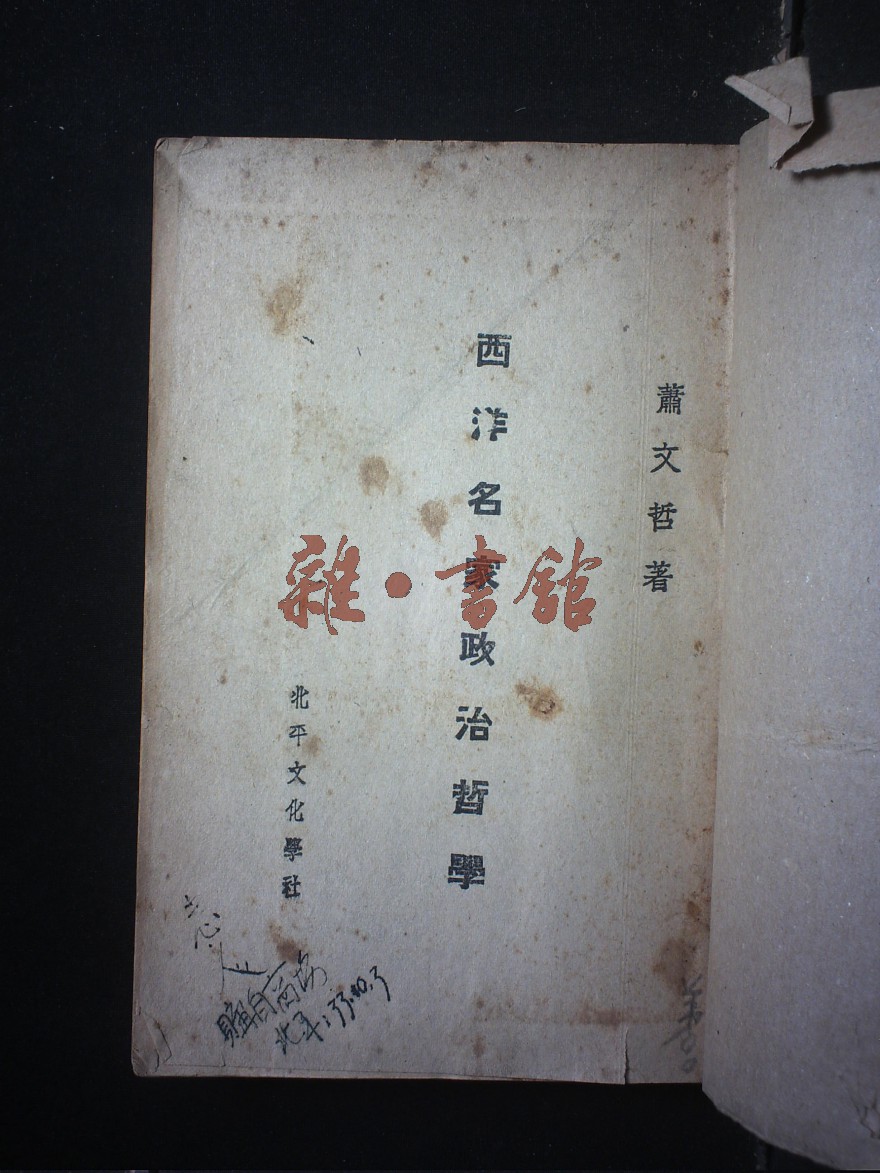 蕭文哲著
西洋名家政治哲學
北平文化學社
雜·書館
購自商場
北平：33.10.3